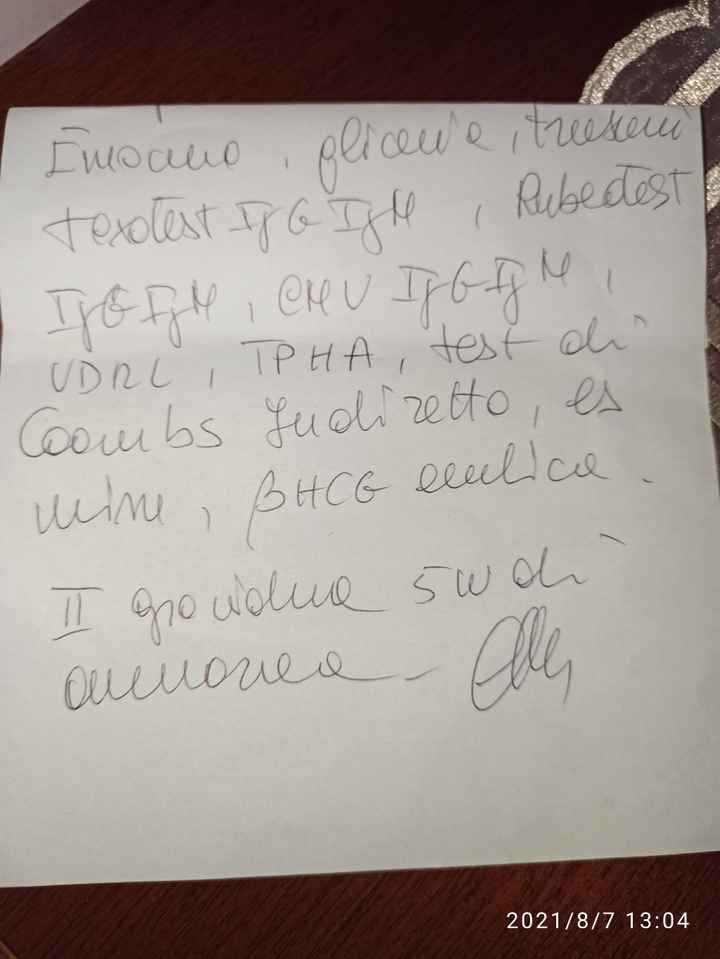 Emocromo, glicemia, transami
toxotest IgG IgM, Rubeotest
IgG IgM, CMV IgG IgM,
VDRL, TPHA, test di
Coombs Indiretto, es
urine, βHCG
II gravidanza 5w di
amenorrea -
2021/8/7 13:04